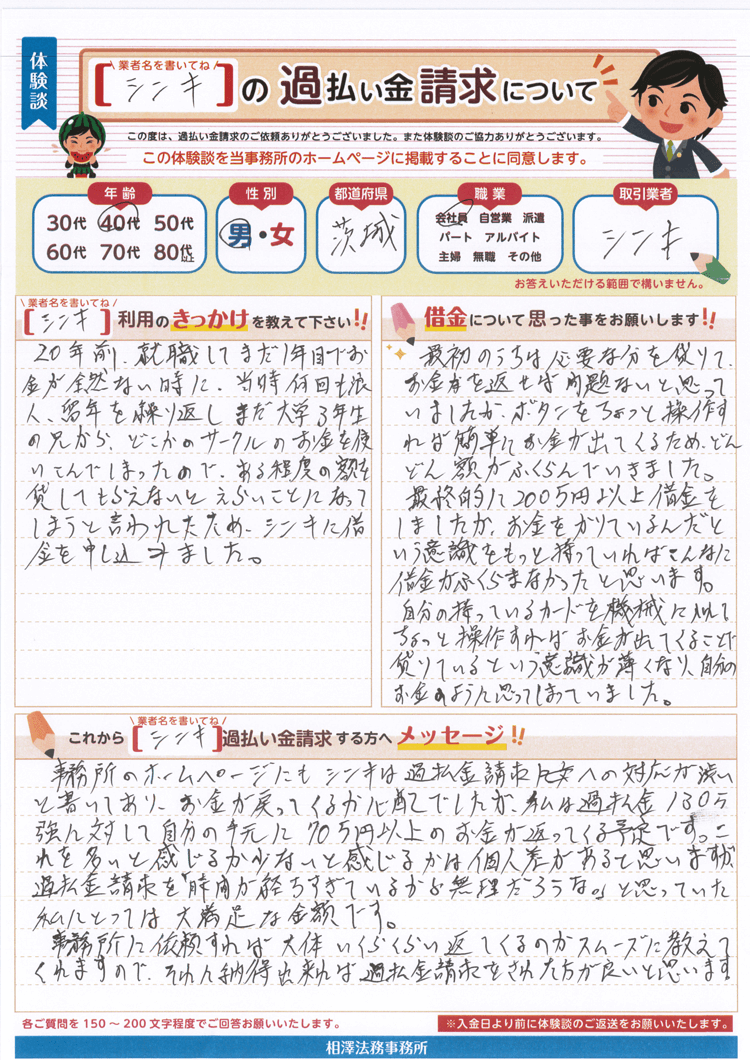 体験談
業者名を書いてね
[シンキ]の過払い金請求について
この度は、過払い金請求のご依頼ありがとうございました。また体験談のご協力ありがとうございます。
この体験談を当事務所のホームページに掲載することに同意します。
年齢
30代 40代 50代
60代 70代 80代以上
性別
男・女
都道府県
茨城
職業
会社員 自営業 派遣
パート アルバイト
主婦 無職 その他
取引業者
シンキ
お答えいただける範囲で構いません。
業者名を書いてね
[シンキ]利用のきっかけを教えて下さい!!
20年前、就職してまだ1年目でお
金が全然ない時に、当時何回も浪
人、留年を繰り返しまだ大学3年生
の兄から、どこかのサークルのお金を使
いこんでしまったので、ある程度の額を
貸してもらえないとえらいことになって
しまうと言われたため、シンキに借
金を申し込みました。
借金について思った事をお願いします!!
最初のうちは必要な分を借りて、
お金を返せば問題ないと思って
いましたが、ボタンをちょっと操作す
れば簡単にお金が出てくるため、どん
どん額がふくらんでいきました。
最終的に200万円以上借金を
しましたが、お金をかりているんだと
いう意識をもっと持っていればこんなに
借金がふくらまなかったと思います。
自分の持っているカードを機械に入れて
ちょっと操作すればお金が出てくることで
借りているという意識が薄くなり、自分の
お金のように思ってしまっていました。
業者名を書いてね
これから[シンキ]過払い金請求する方へメッセージ!!
事務所のホームページにもシンキは過払金請求への対応が渋い
と書いてあり、お金が戻ってくるか心配でしたが、私は過払金130万
強に対して自分の手元に70万円以上のお金が返ってくる予定です。こ
れを多いと感じるか少ないと感じるかは個人差があると思いますが、
過払金請求を「時間が経ちすぎているから無理だろうな。」と思っていた
私にとっては大満足な金額です。
事務所に依頼すれば大体いくらくらい返してくるのかスムーズに教えて
くれますので、それに納得出来れば過払金請求をされた方が良いと思います
各ご質問を150～200文字程度でご回答お願いいたします。
※入金日より前に体験談のご返送をお願いいたします。
相澤法務事務所